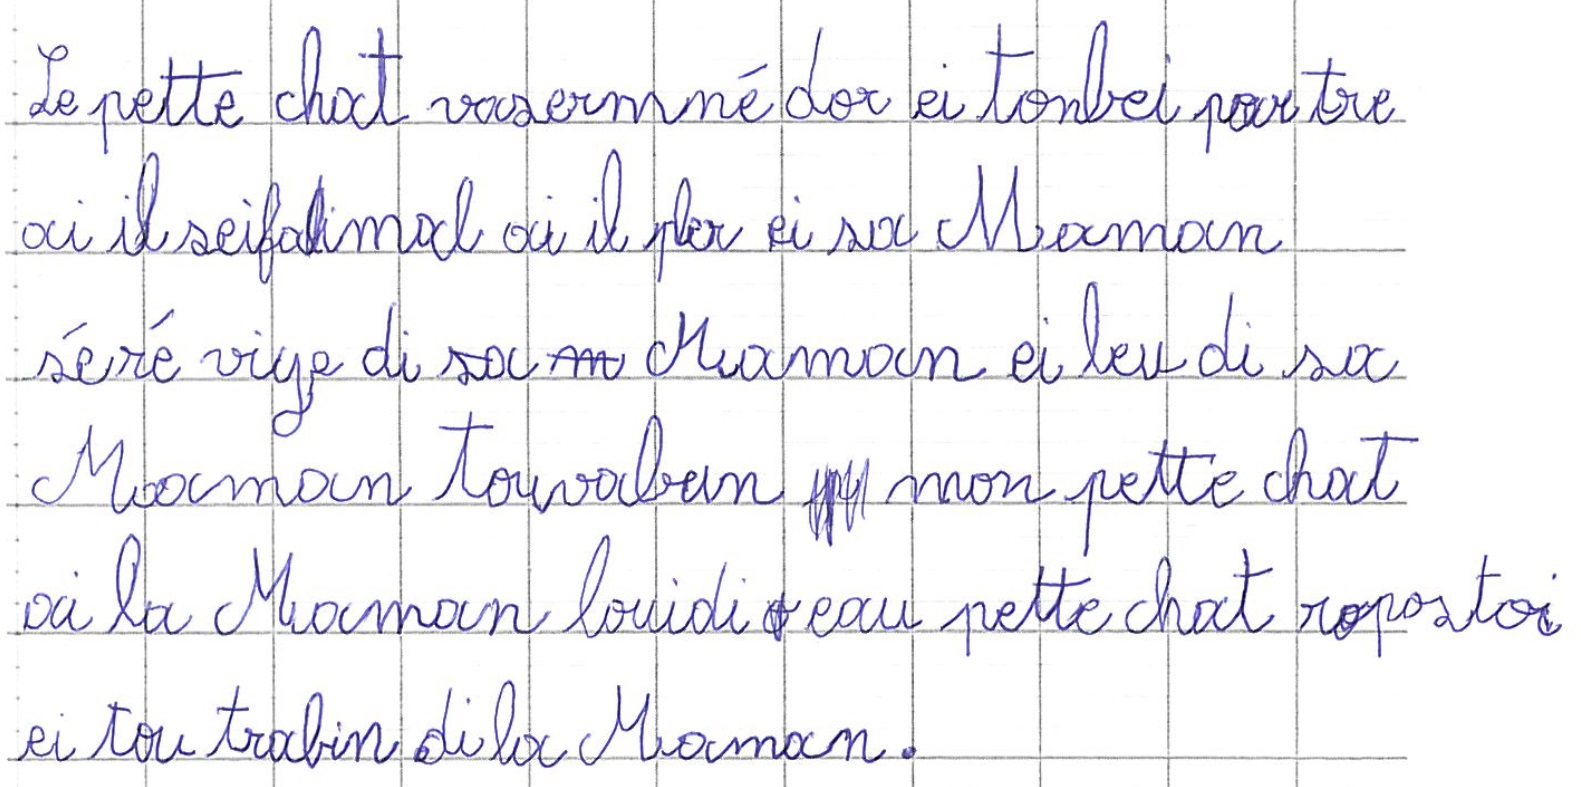 Le pette chat vasermné dor ei tonbei par tre
ai il seifalimal ai il pler ei sa Maman
séré viye di sa m Maman ei leu di sa
Maman touvaban mon pette chat
ai la Maman louidi eau pette chat repostoi
ei tou trabin di la Maman.